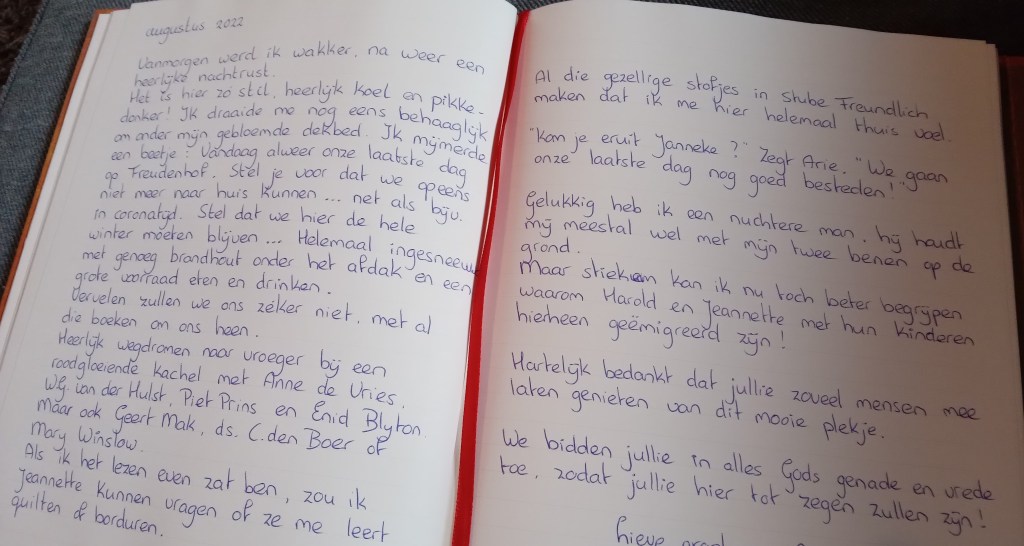 augustus 2022
Vanmorgen werd ik wakker, na weer een
heerlijke nachtrust.
Het is hier zó stil, heerlijk koel en pikke-
donker! Ik draaide me nog eens behaaglijk
om onder mijn gebloemde dekbed. Ik mijmerde
een beetje: Vandaag alweer onze laatste dag
op Freudenhof. Stel je voor dat we opeens
niet meer naar huis kunnen... net als bijv.
in coronatijd. Stel dat we hier de hele
winter moeten blijven... Helemaal ingesneeuwd
met genoeg brandhout onder het afdak en een
grote voorraad eten en drinken.
Vervelen zullen we ons zéker niet, met al
die boeken om ons heen.
Heerlijk wegdromen naar vroeger bij een
roodgloeiende kachel met Anne de Vries,
W.G. van der Hulst, Piet Prins en Enid Blyton.
Maar ook Geert Mak, ds. C. den Boer of
Mary Winslow.
Als ik het lezen even zat ben, zou ik
Jeannette kunnen vragen of ze me leert
quilten of borduren.
Al die gezellige stofjes in Stube Freundlich
maken dat ik me hier helemaal thuis voel.
"Kom je eruit Janneke?" Zegt Arie. "We gaan
onze laatste dag nog goed besteden!"
Gelukkig heb ik een nuchtere man, hij houdt
mij meestal wel met mijn twee benen op de
grond.
Maar stiekem kan ik nu toch beter begrijpen
waarom Harold en Jeannette met hun kinderen
hierheen geëmigreerd zijn!
Hartelijk bedankt dat jullie zoveel mensen mee
laten genieten van dit mooie plekje.
We bidden jullie in alles Gods genade en vrede
toe, zodat jullie hier tot zegen zullen zijn!